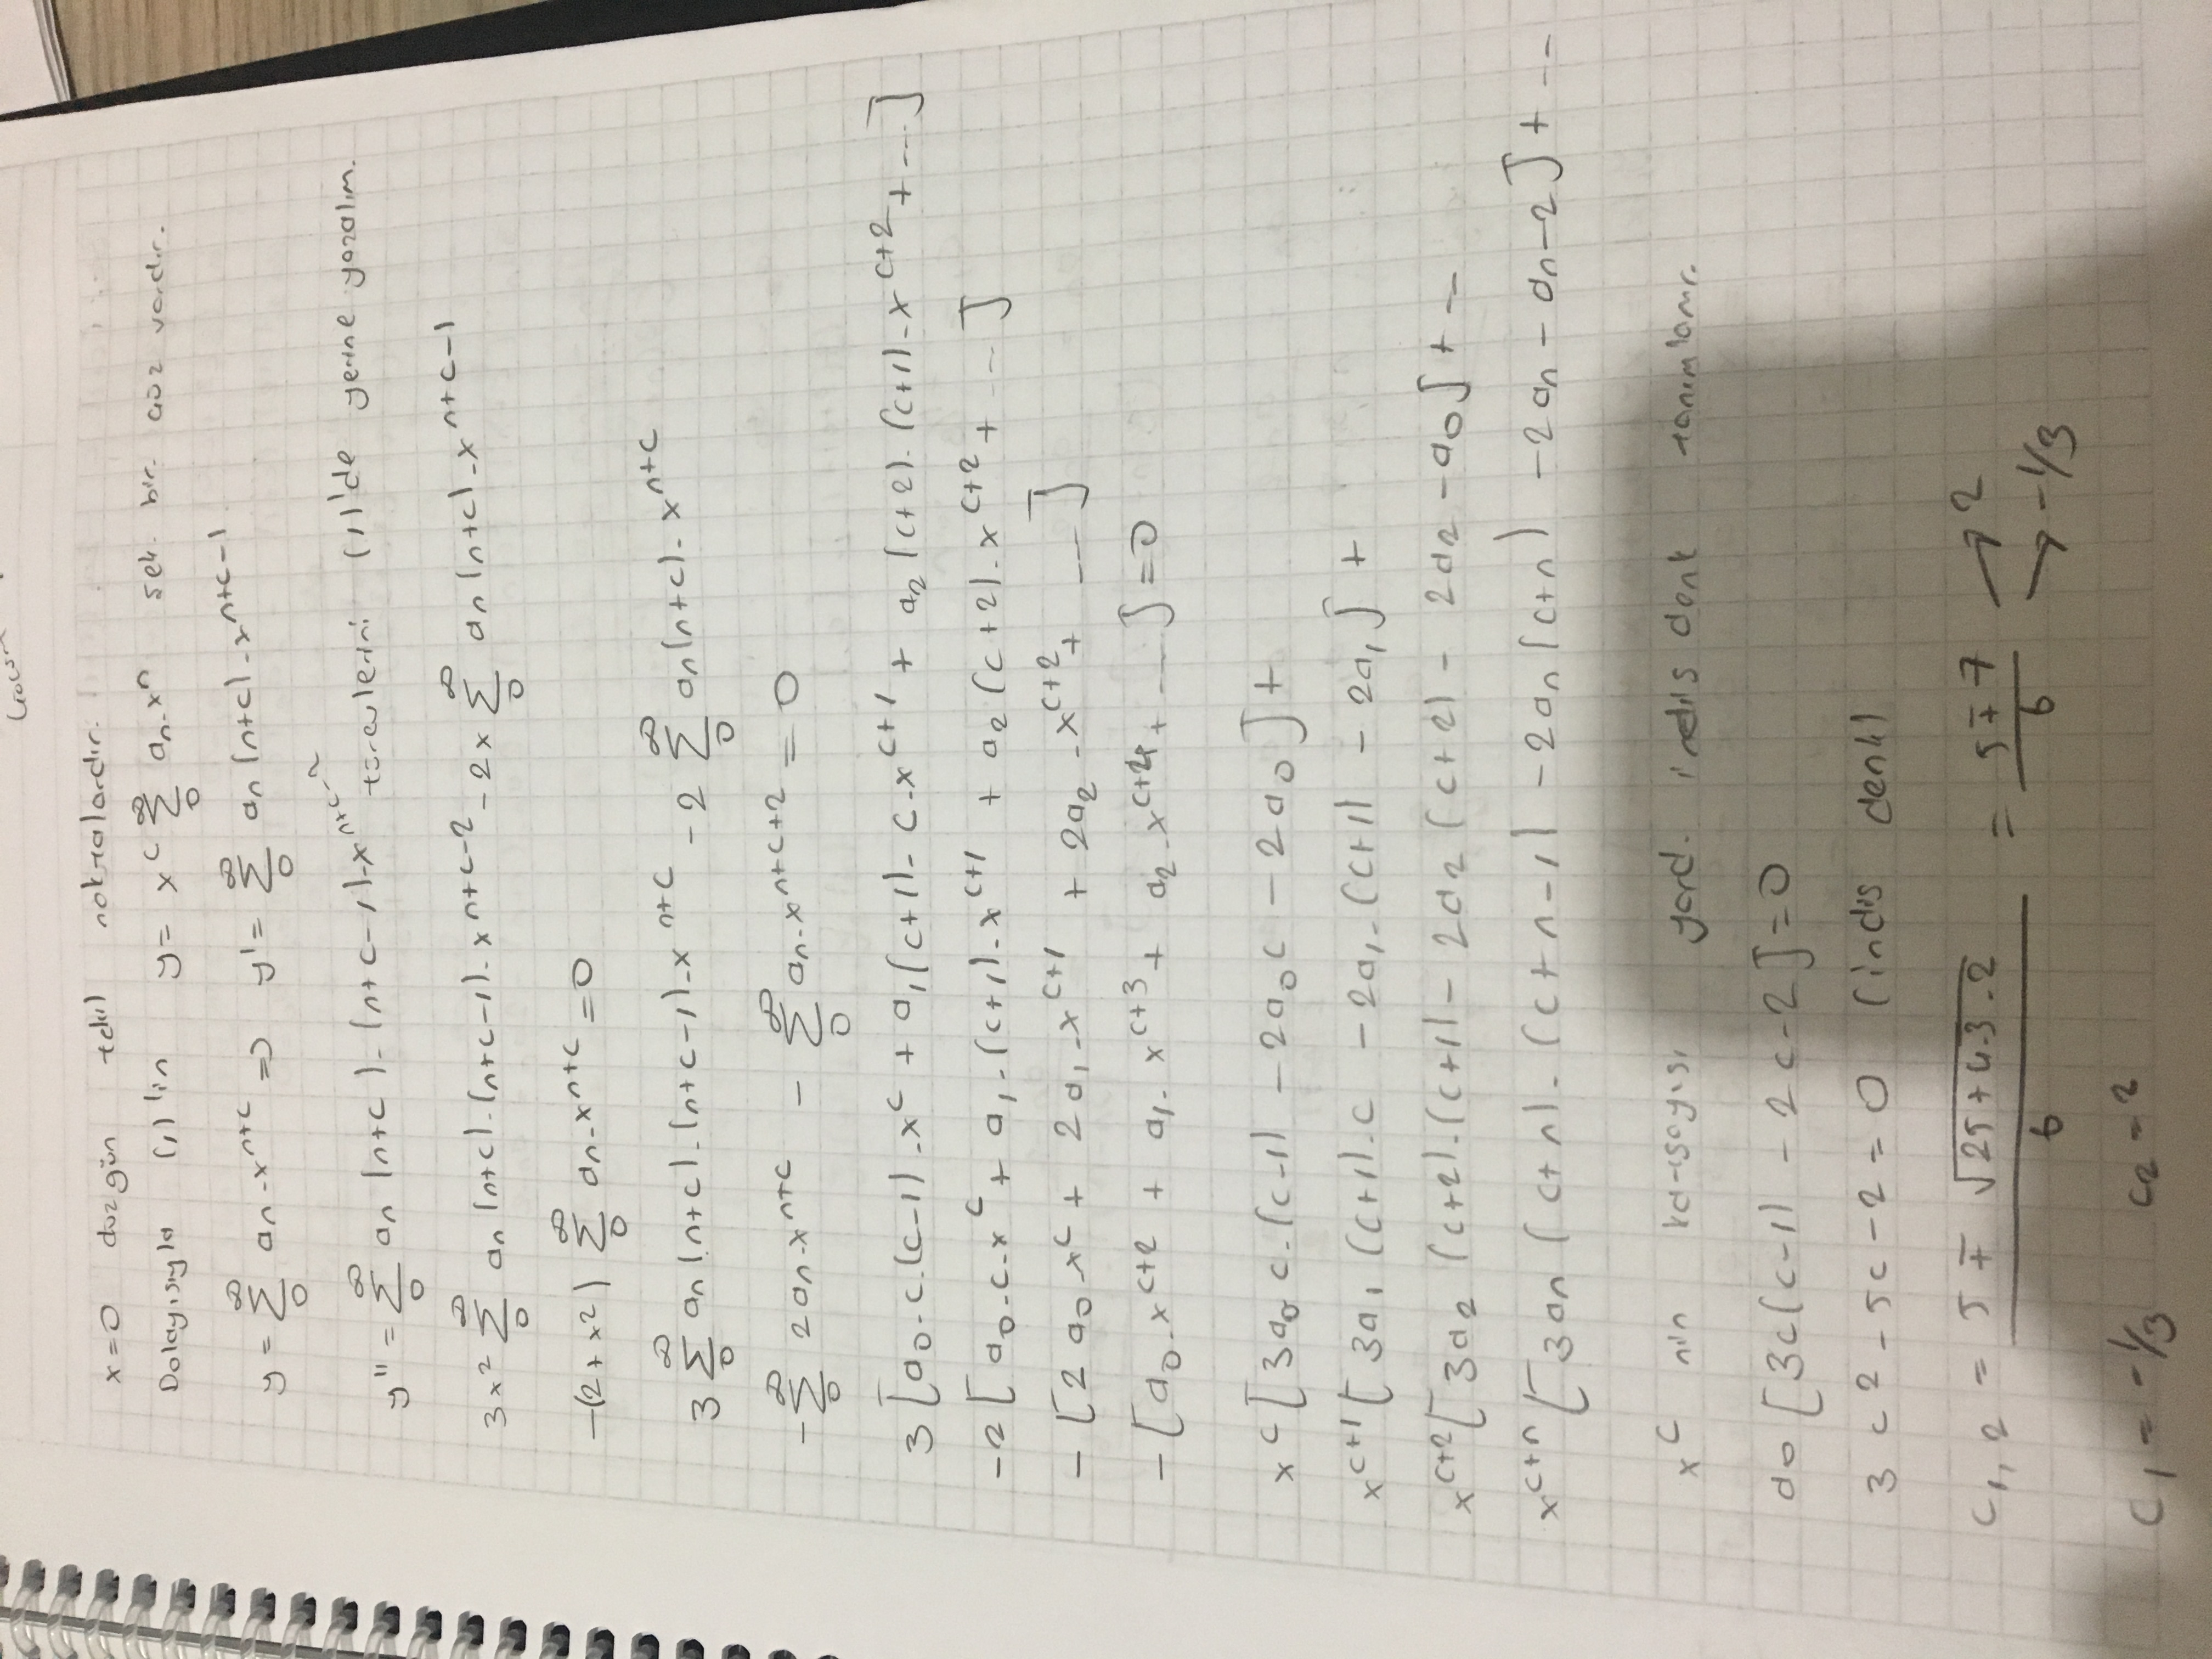 x=0 düzgün tekil noktalardır.
Dolayısıyla (1)'in y = x^c ∑_0^∞ an.x^n şek. bir çöz vardır.
y = ∑_0^∞ an.x^{n+c} => y' = ∑_0^∞ an(n+c).x^{n+c-1}
y'' = ∑_0^∞ an(n+c).(n+c-1).x^{n+c-2} türevlerini (1)'de yerine yazalım.
3x² ∑_0^∞ an(n+c).(n+c-1).x^{n+c-2} - 2x ∑_0^∞ an(n+c).x^{n+c-1}
-(2+x²) ∑_0^∞ an.x^{n+c} = 0
3 ∑_0^∞ an(n+c).(n+c-1).x^{n+c} - 2 ∑_0^∞ an(n+c).x^{n+c}
- ∑_0^∞ 2an.x^{n+c} - ∑_0^∞ an.x^{n+c+2} = 0
3[a0.c.(c-1).x^c + a1(c+1).c.x^{c+1} + a2(c+2).(c+1).x^{c+2} + ...]
-2[a0.c.x^c + a1.(c+1).x^{c+1} + a2(c+2).x^{c+2} + ...]
-[2a0.x^c + 2a1.x^{c+1} + 2a2.x^{c+2} + ...]
-[a0.x^{c+2} + a1.x^{c+3} + a2.x^{c+4} + ...] = 0
x^c[3a0c.(c-1) - 2a0c - 2a0] +
x^{c+1}[3a1(c+1).c - 2a1.(c+1) - 2a1] +
x^{c+2}[3a2(c+2).(c+1) - 2a2(c+2) - 2a2 - a0] + ...
x^{c+n}[3an(c+n).(c+n-1) - 2an(c+n) - 2an - an-2] + ...
x^c nin katsayısı yard. indis denk tanımlanır.
a0[3c(c-1) - 2c - 2] = 0
3c² - 5c - 2 = 0 (indis denk)
c1,2 = (5 ∓ √(25+4.3.2))/6 = (5∓7)/6 → 2 → -1/3
c1 = -1/3 c2 = 2